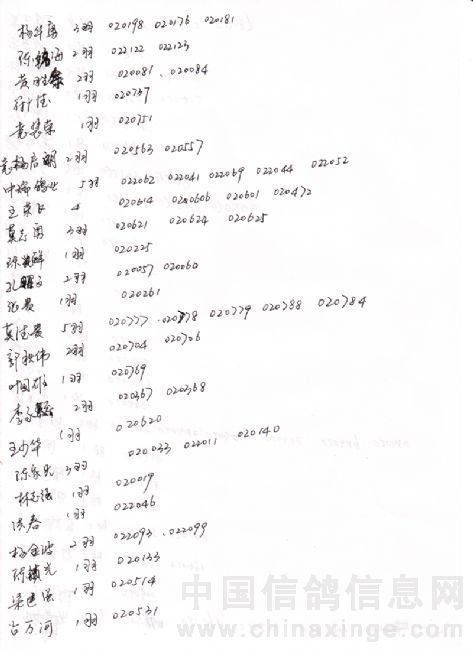 杨华房 3羽 020198 020176 020181
陈锦海 2羽 022122 022123
黄 2羽 020081 020084
1羽 020737
荣 1羽 020751
杨启明 2羽 020563 020557
中瑞鸽业 5羽 022062 022041 022069 022044 022052
王 4 020614 020606 020601 020472
莫志勇 3羽 020621 020624 020625
陈 1羽 020225
孔 2羽 020057 020060
1羽 020261
莫德贵 5羽 020777 020778 020779 020788 020784
郭 伟 2羽 020704 020706
叶国 1羽 020769
李 2羽 020367 020368
王少华 1羽 020620
陈家 3羽 020033 022011 020140
林志强 1羽 020019
洪春 1羽 022046
杨金波 2羽 022093 022099
陈镇光 1羽 020133
梁 强 1羽 020514
古万河 1羽 020531
中国信鸽信息网
www.chinaxinge.com